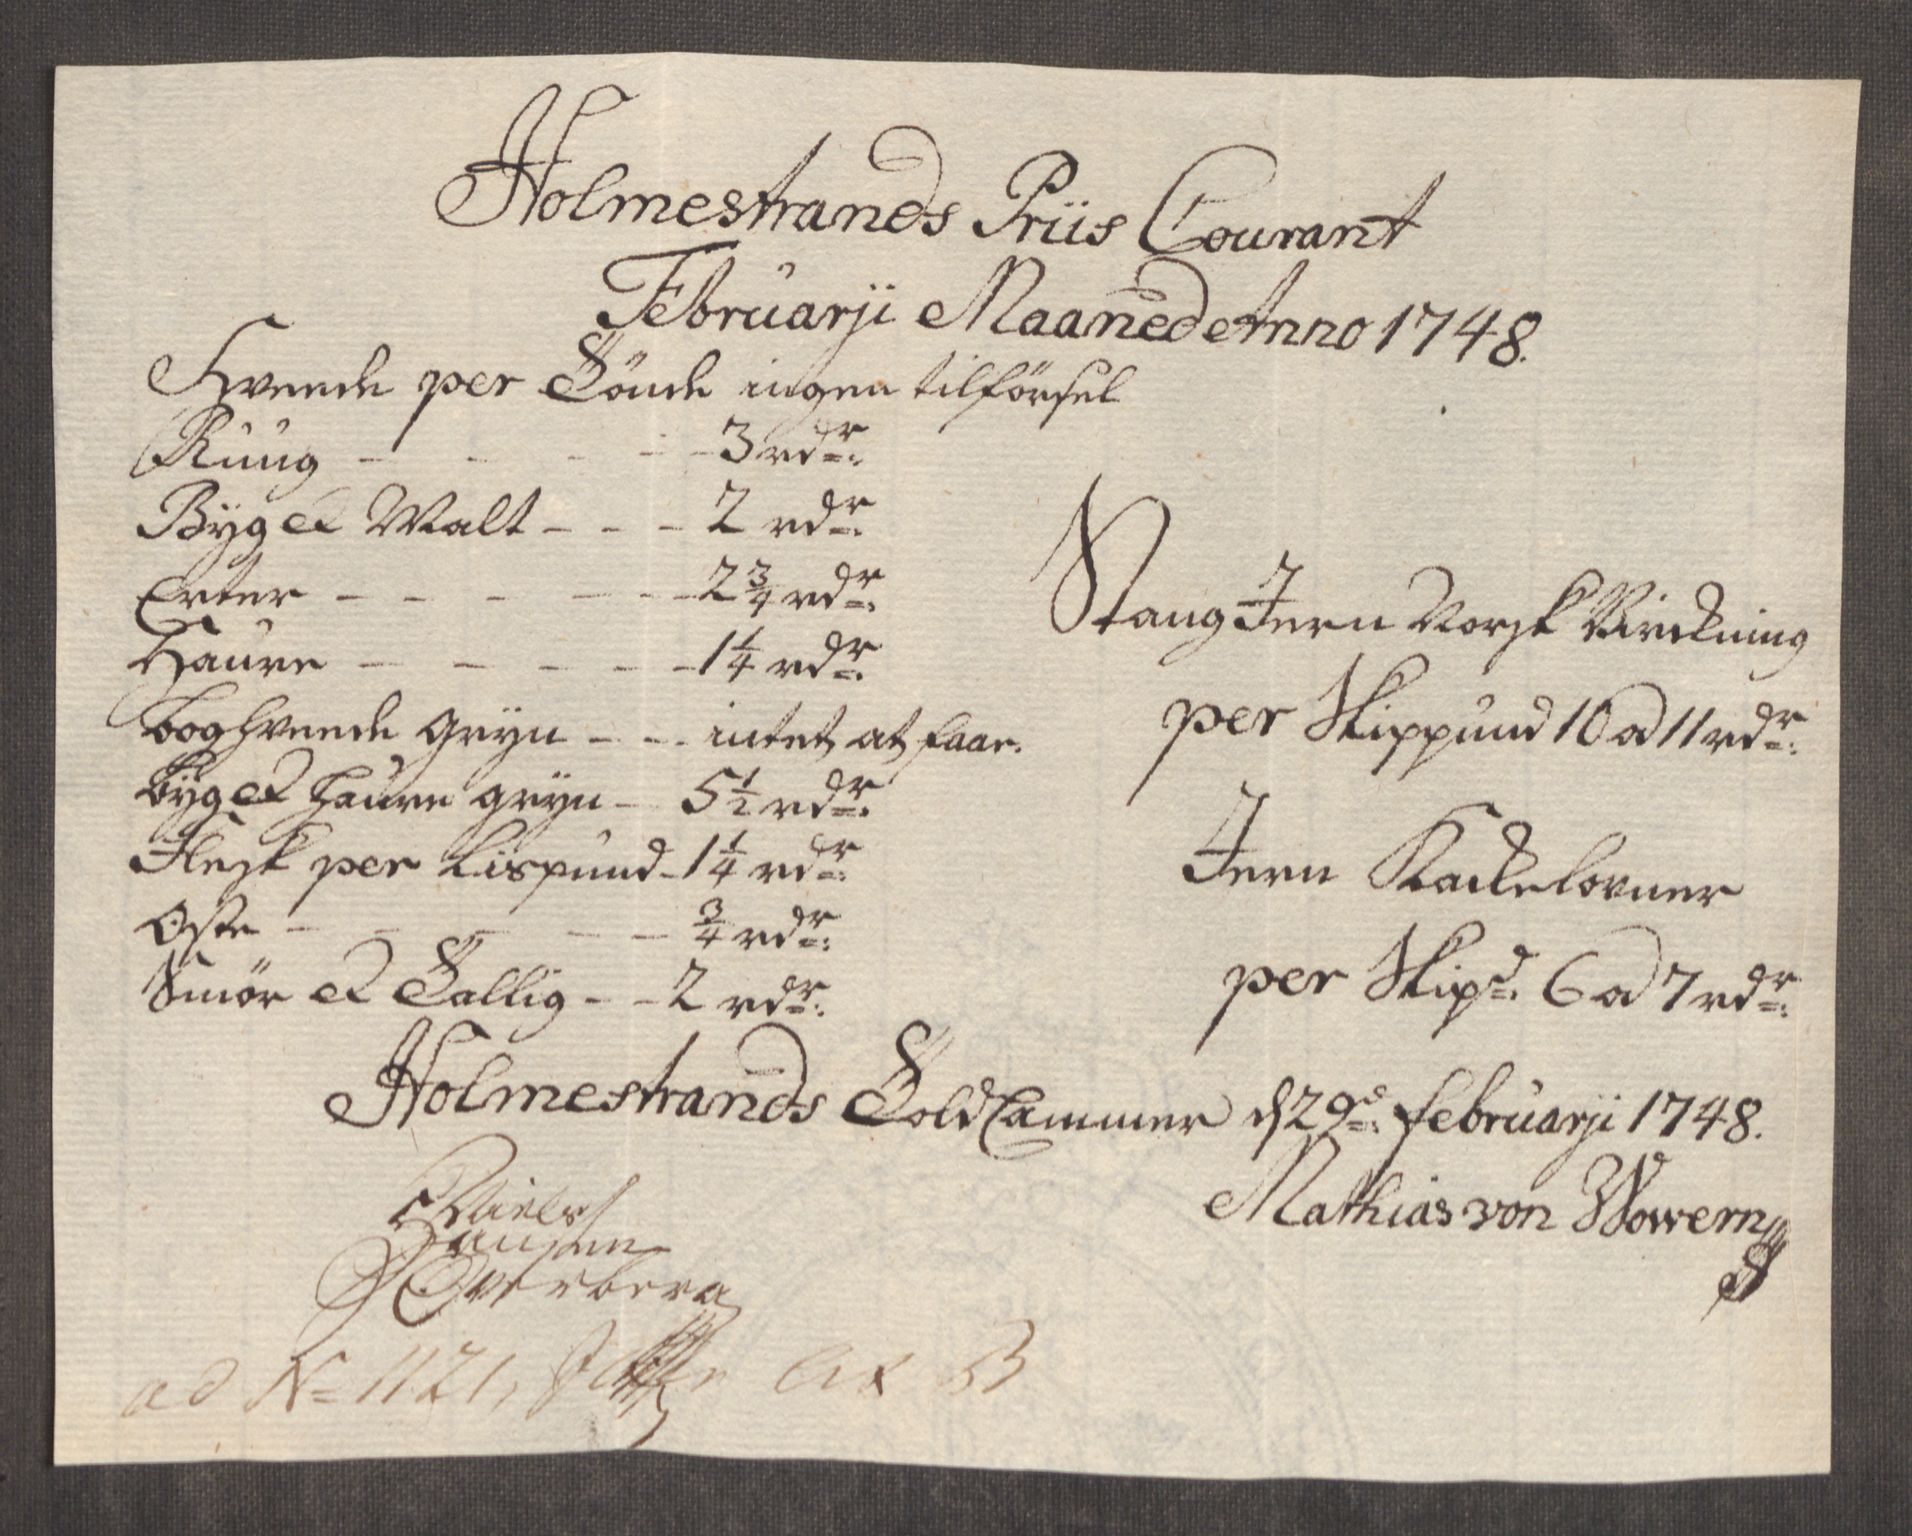 Holmestrands Priis Courant
Februarji Maaned Anno 1748.
Hveede per Tönde ingen tilförsel
Rüug - - - - - 3 rdr:
Byg & Malt - - - 2 rdr:
Erter - - - - - - 2 3/4 rdr:
Haure - - - - - - 1 1/4 rdr:
boghveede gryn - - - intet at faae.
byg & haure gryn - 5 1/2 rdr:
Flesk per Lispund - 1 1/4 rdr:
Oste - - - - - 3/4 rdr:
Smör & Tallig - - 2 rdr:
Stang Jern Norsk Virckning
per Skippund 10 a 11 rdr:
Jern Kackelovner
per Skipd: 6 a 7 rdr:
Holmestrands Told Cammer d 29de: februarji 1748.
Mathias von Wowern
Niels
Hansen
Overberg
ad No 1121, Lit B